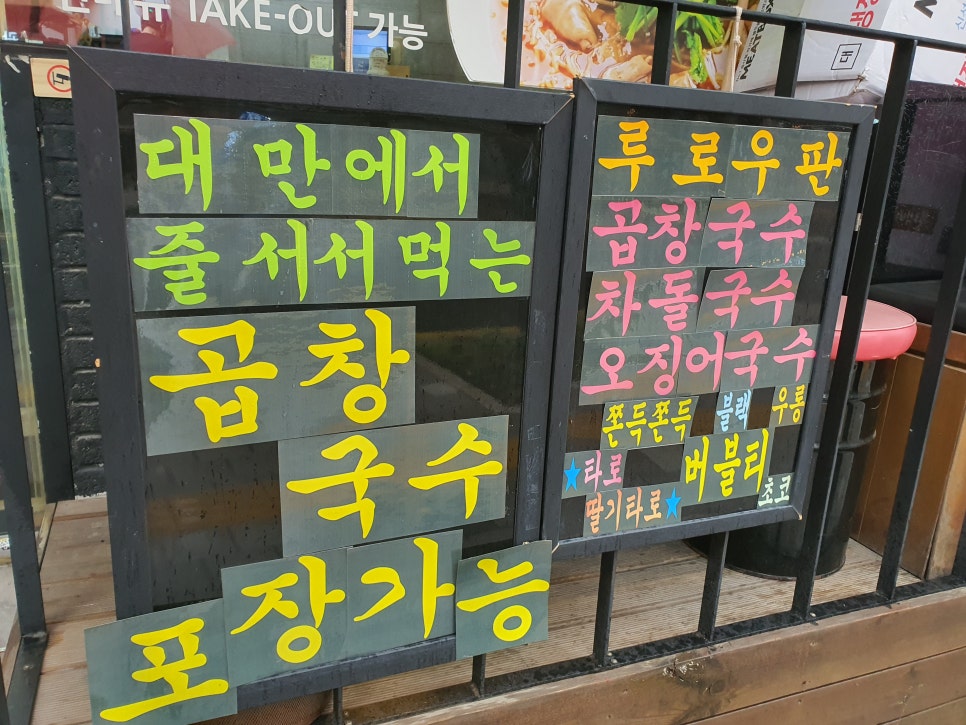 TAKE-OUT 가능
대만에서
줄서서 먹는
곱창
국수
포장가능
루로우판
곱창국수
차돌국수
오징어국수
쫀득쫀득 블랙 우롱
★타로 버블티
딸기타로★ 초코